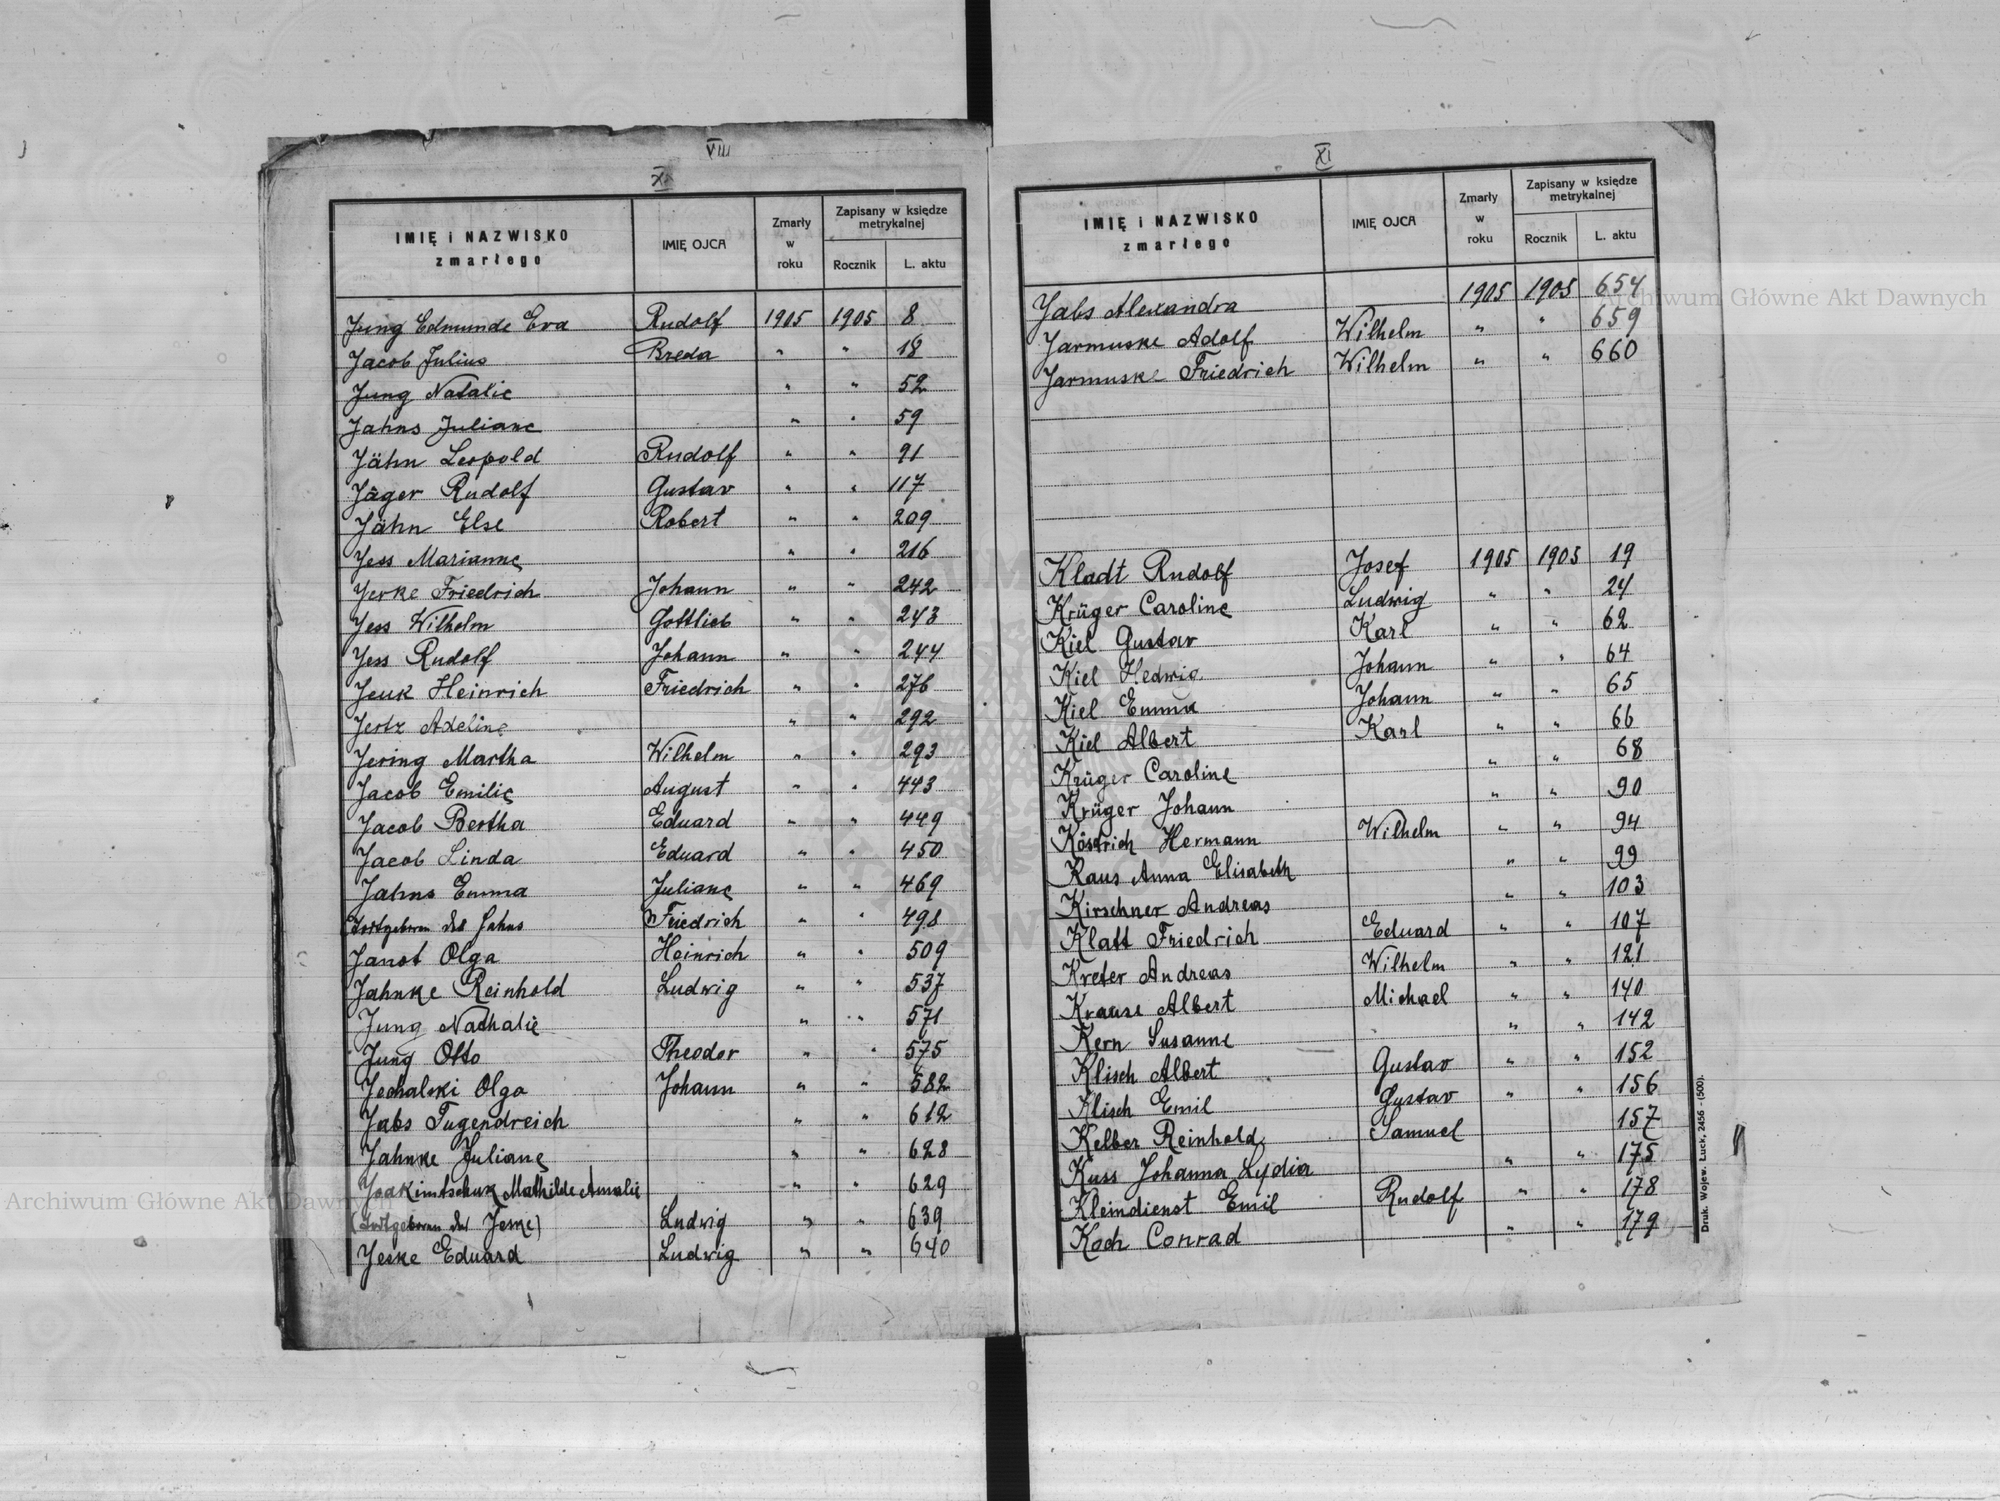 VIII
X
IMIĘ i NAZWISKO zmarłego IMIĘ OJCA Zmarły w roku Zapisany w księdze metrykalnej Rocznik L. aktu
Jung Edmunde Eva Rudolf 1905 1905 8
Jacob Julius Breda " " 18
Jung Natalie " " 52
Jahns Juliane " " 59
Jähn Leopold Rudolf " " 91
Jäger Rudolf Gustav " " 117
Jähn Else Robert " " 209
Jess Marianne " " 216
Jerke Friedrich Johann " " 242
Jess Wilhelm Gottlieb " " 243
Jess Rudolf Johann " " 244
Jeuk Heinrich Friedrich " " 276
Jertz Adeline " " 292
Jering Martha Wilhelm " " 293
Jacob Emilie August " " 443
Jacob Bertha Eduard " " 449
Jacob Linda Eduard " " 450
Jahns Emma Juliane " " 469
(totgeboren des Jahns Friedrich " " 498
Janot Olga Heinrich " " 509
Jahnke Reinhold Ludwig " " 537
Jung Nathalie " " 571
Jung Otto Theodor " " 575
Jechalski Olga Johann " " 582
Jabs Tugendreich " " 612
Jahnke Juliane " " 628
Joakimtschuk Mathilde Amalie " " 629
(totgeboren des Jeske) Ludwig " " 639
Jeske Eduard Ludwig " " 640
XI
IMIĘ i NAZWISKO zmarłego IMIĘ OJCA Zmarły w roku Zapisany w księdze metrykalnej Rocznik L. aktu
Jabs Alexandra 1905 1905 654
Jarmuske Adolf Wilhelm " " 659
Jarmuske Friedrich Wilhelm " " 660
Kladt Rudolf Josef 1905 1905 19
Krüger Caroline Ludwig " " 24
Kiel Gustav Karl " " 62
Kiel Hedwig Johann " " 64
Kiel Emma Johann " " 65
Kiel Albert Karl " " 66
Krüger Caroline " " 68
Krüger Johann " " 90
Hermann Wilhelm " " 94
Kaus Anna Elisabeth " " 99
Kirschner Andreas " " 103
Klatt Friedrich Eduard " " 107
Kreter Andreas Wilhelm " " 121
Krause Albert Michael " " 140
Kern Susanne " " 142
Klisch Albert Gustav " " 152
Klisch Emil Gustav " " 156
Kelber Reinhold Samuel 157
Kuss Johanna Lydia " " 175
Kleindienst Emil Rudolf " " 178
Koch Conrad " " 179
Druk. Wojew. Łuck, 2456 - (500).
Archiwum Główne Akt Dawnych
Archiwum Główne Akt Dawnych